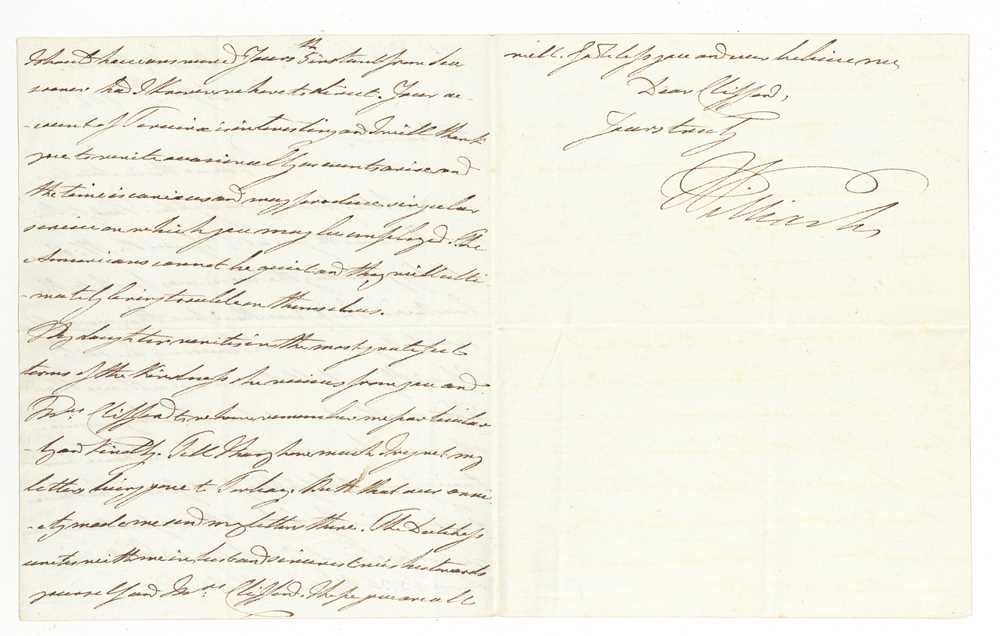 I should have answered Yours 5th instant from Sea
sooner had I known where to direct. Your ac-
-count of Terceira is interesting and I will thank
you to write occasionally Your events arise and
the time is anxious and may produce singular
service on which you may be employed. The
Americans cannot be quiet and they will ulti-
-mately bring trouble on themselves.
My daughter writes in the most grateful
terms of the Kindness she receives from you and
Mrs Clifford to whom remember me particular
-ly and kindly. Tell Mary how much I regret my
letters being gone to Torbay. But that over anxi-
-ety made me send my letters there. The Dutchess
unites with me in best and sincerest wishes towards
yourself and Mrs Clifford. I hope you are all
well. God bless you and ever believe me
Dear Clifford,
Yours truly
William